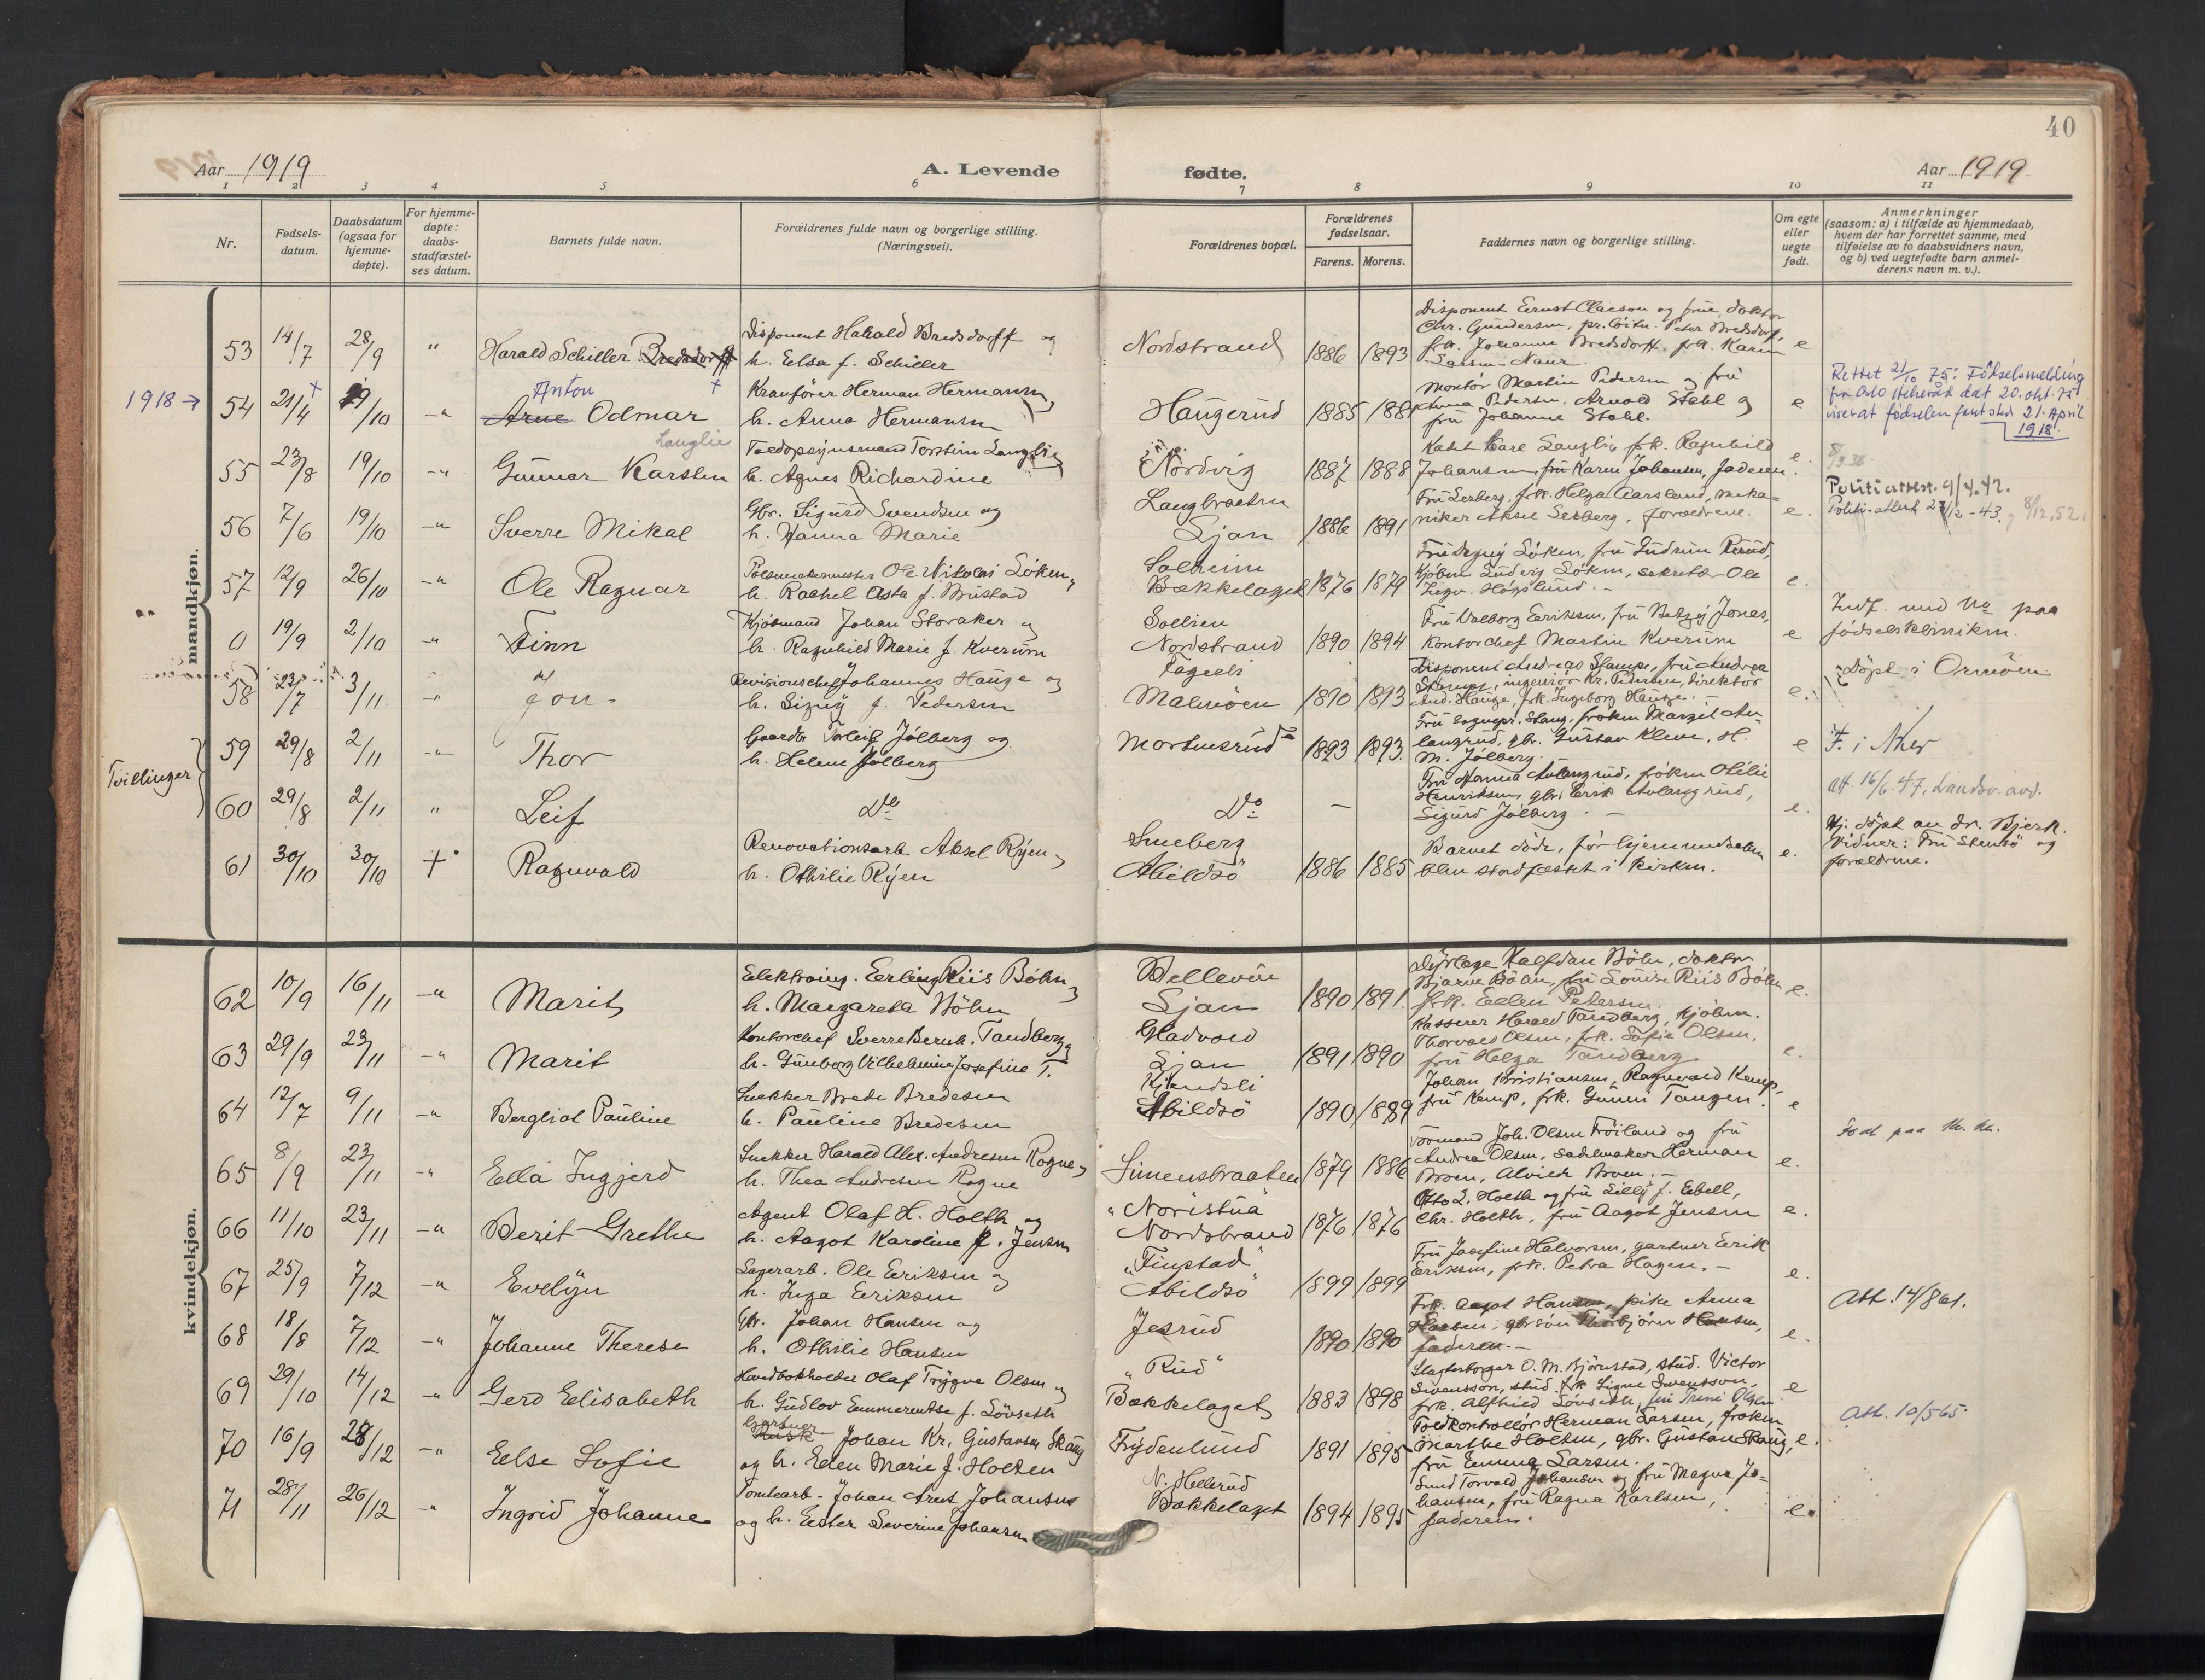 40
Aar 1919
A. Levende
fødte.
Aar 1919
1 2 3 4 5 6 7 8 9 10 11
Nr.
Fødsels-
datum.
Daabsdatum
(ogsaa for
hjemme-
døpte).
For hjemme-
døpte:
daabs-
stadfæstel-
ses datum.
Barnets fulde navn.
Forældrenes fulde navn og borgerlige stilling.
(Næringsvei).
Forældrenes bopæl.
Forældrenes
fødselsaar.
Farens. Morens.
Faddernes navn og borgerlige stilling.
Om egte
eller
uegte
født.
Anmerkninger
(saasom: a) i tilfælde av hjemmedaab,
hvem der har forrettet samme, med
tilføielse av to daabsvidners navn,
og b) ved uegtefødte barn anmel-
derens navn m. v.).
mandkjøn.
53 14/7 28/9 " Harald Schiller Bredsdorff
Disponent Harald Bredsdorff og
h. Elsa f. Schiller
Nordstrand 1886 1893
Disponent Ernst Claeson og frue, doktor
Chr. Gundersen, Peter Bredsdorff,
frk. Johanne Bredsdorff, frk. Karin
e
1918 → 54 21/4 19/10 -"- Arne Odmar
Anton
Kranfører Herman Hermansen
h. Anna Hermansen
Haugerud 1885 1881
Montør Martin Pedersen og fru
Anna Pedersen, Arnold Stahl og
fru Johanne Stahl.
e
Rettet 21/10 75: Fødselsmelding
fra Oslo Helseråd dat 20. okt. 75
viser at fødselen fant sted 21. April
1918.
55 23/8 19/10 -"- Gunnar Karsten
Langlie
Toldopsynsmand Torstein Langlie
h. Agnes Richardine
Nordvig 1887 1888
Kadet Kare Langlie, frk. Ragnhild
Johansen, fru Karen Johansen, faderen.
e.
8/3.38
56 7/6 19/10 -"- Sverre Mikal
Gbr. Sigurd Svendsen og
h. Hanna Marie
Langbraaten
Ljan 1886 1891
Fru Serberg, frk. Helga Aarsland, meka-
niker Aksel Seeberg, forældrene.
e.
Politiattest. 9/4.42.
Politi-attest 27/12-43. 8/12.52.
57 12/9 26/10 -"- Ole Ragnar
Pølsemakermester Ole Nikolai Løken,
h. Rachel Asta f. Brustad
Solheim
Bækkelaget 1876 1879
Fru Dagny Løken, fru Gudrun Ruud,
Kjøbm Ludvig Løken, sekretær Ole
Ingv. Høgslund. -
e.
0 19/9 2/10 -"- Finn
Kjøbmand Johan Storaker og
h. Ragnhild Marie f. Kverum
Sollien
Nordstrand 1890 1894
Fru Valborg Eeriksen, fru Betzy Jonas,
Kontorchef Martin Kverum
e
Indf. med No paa
fødselsklinikken.
58 23/7 3/11 -"- Jon
Revisionschef Johannes Hauge og
h. Signy f. Pedersen
Fagerli
Malmøen 1890 1893
Disponent Andreas Stamps, fru Andrea
Stamps, ingeniør Kr. Pedersen, direktør
And. Hauge, frk. Ingeborg Hauge. -
e.
Døpt i Ormøen
Tvillinger
59 29/8 2/11 -"- Thor
Gaardbr Torleif Jølberg og
h. Helene Jølberg
Mortensrud 1893 1893.
Fru sognepr. Stang, frøken Margit Av-
langrud, gbr. Gustav Kleve, H.
M. Jølberg.
e
F. i Aker
60 29/8 2/11 " Leif
Do
Do -
Fru Hanna Avlangrud, frøken Otilie
Henriksen, gbr. Eerik Avlangrud,
Sigurd Jølberg. -
e.
att. 16/6.47. Landsv. avd.
61 30/10 30/10 + Ragnvald
Renovationsarb Aksel Ryen,
h. Othilie Ryen
Smeberg
Abildsø 1886 1885
Barnet døde, før hjemmedaaben
blev stadfæstet i kirken.
e.
Hj. døpt av dr. Bjerk.
Vidner: Fru Stensø og
forældrene.
kvindekjøn.
62 10/9 16/11 -"- Marit
Elektroing. Eerling Riis Bøhn,
h. Margareta Bøhn
Bellevue
Ljan 1890 1891.
Dyrlæge Halfdan Bøhn, doktor
Bjarne Bøhn, fru Louise Riis Bøhn
frk. Ellen Petersen.
e.
63 29/9 23/11 -"- Marit
Kontorchef Sverre Bernh. Tandberg
h. Gunborg Vilhelmine Josefine T.
Gladvold
Ljan 1891 1890
Kasserer Harald Tandberg, Kjøbm.
Thorvald Olsen, frk. Sofie Olsen,
fru Helga Tandberg.
e.
64 12/7 9/11 -"- Bergliot Pauline
Snekker Brede Bredesen
h. Pauline Bredesen
Abildsø 1890 1889
Johan Kristiansen, Ragnvald Kemp,
fru Kemp, frk. Gunni Tangen.
e
Født paa Kv. kl.
65 8/9 23/11 -"- Ella Ingjerd
Snekker Harald Alex. Andresen Rogne,
h. Thea Andresen Rogne
Simensbraaten 1879 1886
Formand Joh. Olsen Frøiland og fru
Andrea Olsen, sadelmaker Herman
Broen, Alvilde Broen. -
e.
66 11/10 23/11 -"- Berit-Grethe
Agent Olaf H. Holth og
h. Aagot Karoline f. Jensen
"Noristua"
Nordstrand 1876 1876
Otto L. Holth og fru Lilly f. Ebell,
Chr. Holth, fru Aagot Jensen
e.
67 25/9 7/12 -"- Evelyn
Lagerarb. Ole Eeriksen og
h. Inga Eeriksen
"Finstad"
Abildsø 1899 1899
Fru Josefine Halvorsen, gartner Eerik
Eeriksen, frk. Petra Hagen. -
e.
Att. 14/8 61.
68 18/8 7/12 -"- Johanne Therese
Gbr. Johan Hansen og
h. Othilie Hansen
Jesrud 1890 1890
Frk. Aagot Hansen, pike Anna
Hansen, gbrsøn Thorbjørn Hansen,
faderen. -
e.
69 29/10 14/12 -"- Gerd Elisabeth
Handbokholder Olaf Trygve Olsen og
h. Gudlov Emmerentse f. Løvseth
"Rud"
Bækkelaget 1883 1898
Slagterborger O. M. Bjørnstad, stud. Victor
Svensson, stud. frk Signe Svensson,
frk. Alfhild Løvseth, fru Trine Olsen
e
70 16/9 28/12 -"- Else Sofie
Gartner
Johan Kr. Gustavsen Skaug
og h. Ellen Marie f. Holten
Frydenlund 1891 1895
Toldkontrollør Herman Larsen, frøken
Marthe Holten, gbr. Gustav Skaug,
fru Emma Larsen.
e.
Att. 10/5 65.
71 28/11 26/12 -"- Ingrid Johanne
Tomtearb. Johan Arnt Johansen
og h. Ester Severine Johansen
N. Hellerud
Bækkelaget 1894 1895
Smed Torvald Johansen og fru Magna Jo-
hansen, fru Ragna Karlsen,
faderen.
e.